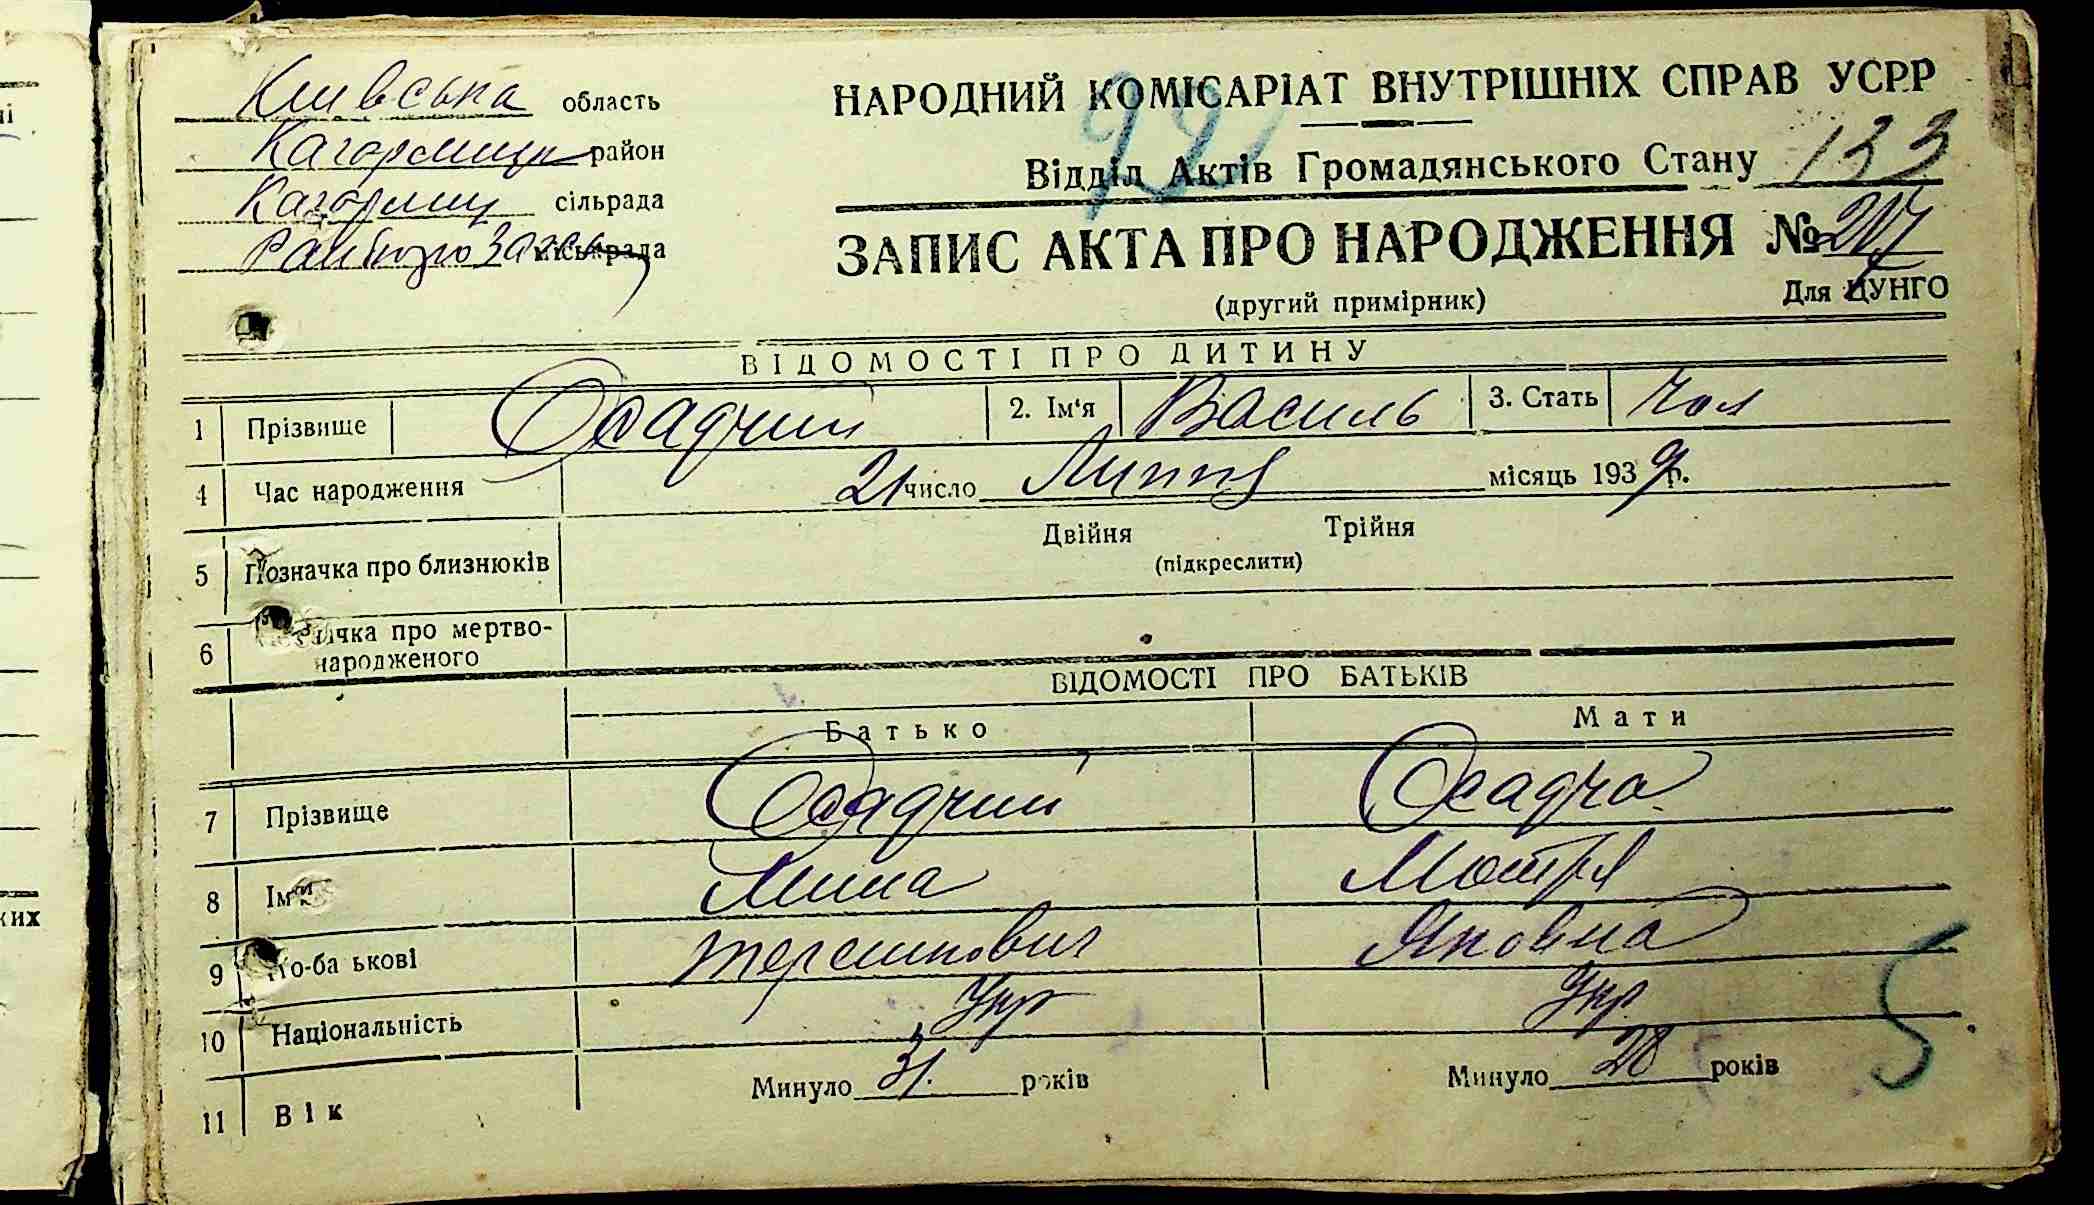 Київська область
Кагарлицьк район
Кагарлиц сільрада
Райбюро Загсу міськрада
НАРОДНИЙ КОМІСАРІАТ ВНУТРІШНІХ СПРАВ УСРР
Відділ Актів Громадянського Стану 133
ЗАПИС АКТА ПРО НАРОДЖЕННЯ №
(другий примірник) Для ЦУНГО
ВІДОМОСТІ ПРО ДИТИНУ
1 Прізвище Осадчий 2. Ім'я Василь 3. Стать Чол
4 Час народження 21 число Липня місяць 1939 р.
Двійня Трійня
5 Позначка про близнюків (підкреслити)
6 Позначка про мертво-
народженого
ВІДОМОСТІ ПРО БАТЬКІВ
Батько Мати
7 Прізвище Осадчий Осадча
8 Ім'я Мина Мотря
9 По-ба ькові Терешкович Яковна
10 Національність Укр Укр
11 Вік Минуло 31. років Минуло 28 років
5
ких